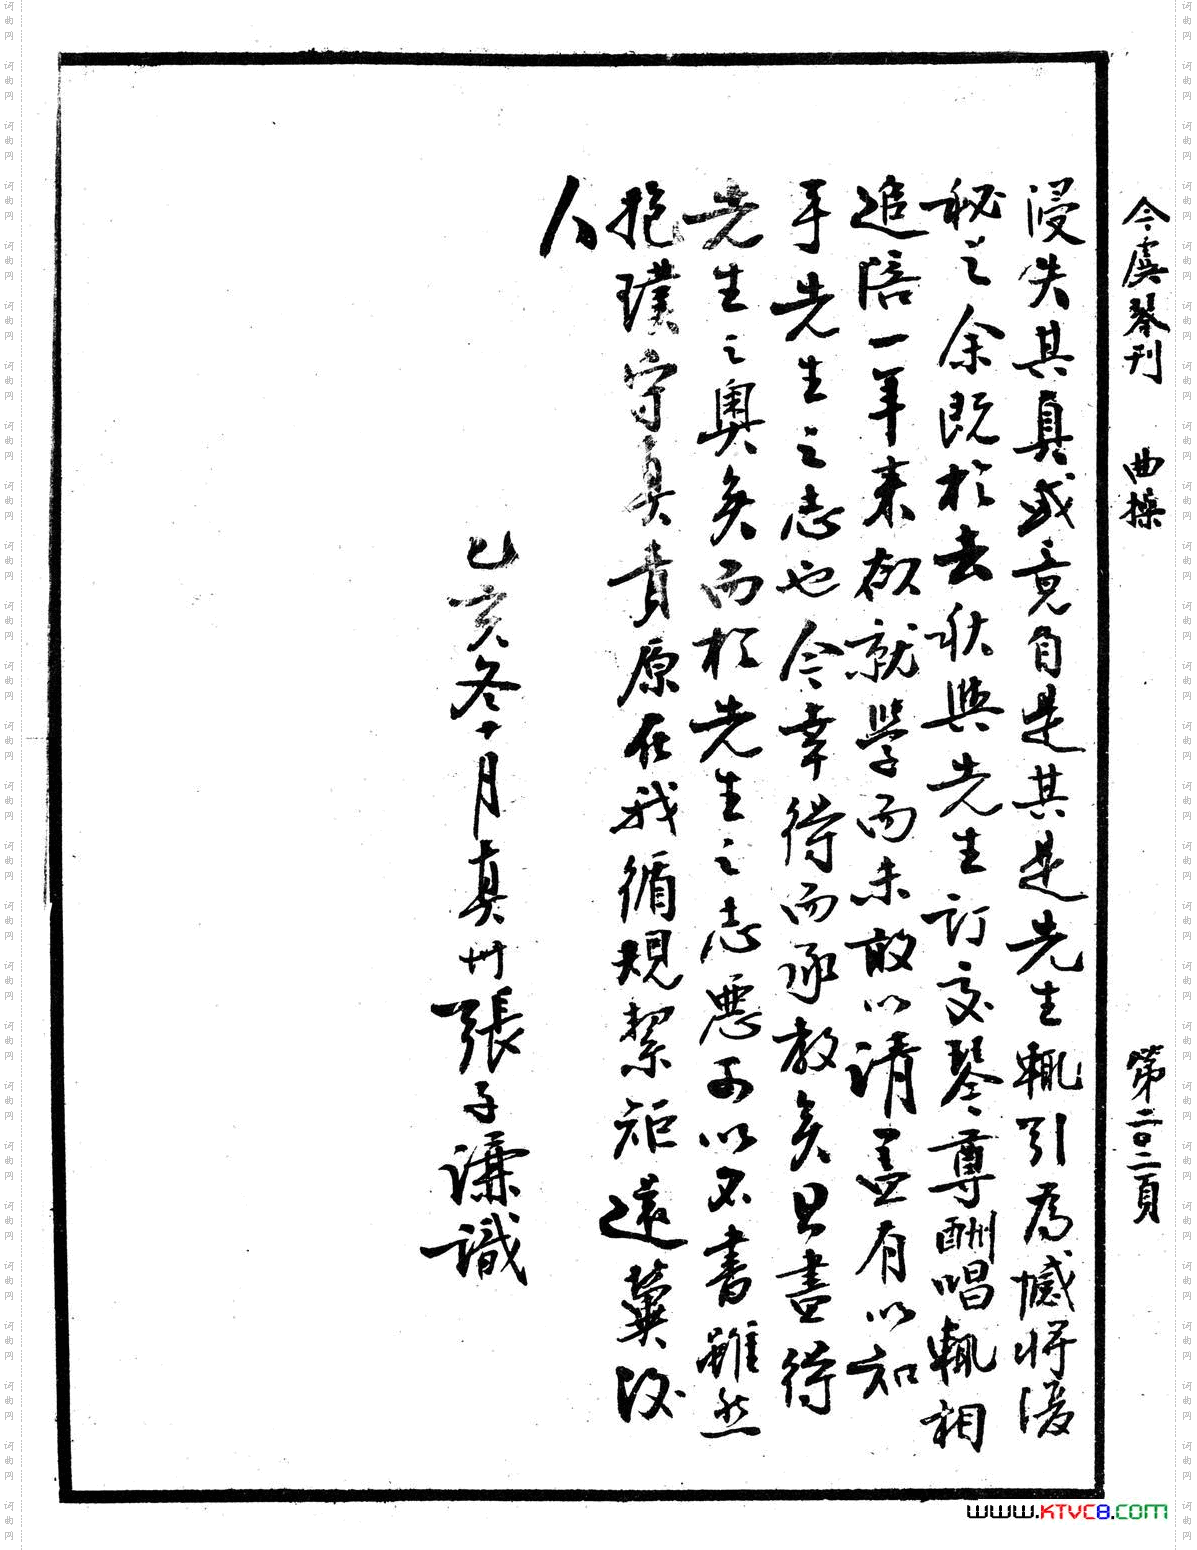 今虞琴刊 曲操 第二〇二頁
浸失其真或竟自是其是先生輒引為憾將濅
秘之余既於去秋與先生訂交琴尊酬唱輒相
追陪一年來欲就學而未敢以請蓋有以知
乎先生之志也今幸得而承教矣且盡得
先生之奧矣而於先生之志惡可以不書雖然
抱璞守真責原在我循規絜矩還冀後
人
乙亥冬十月真州張子謙識
www.KTVC8.com
词曲网